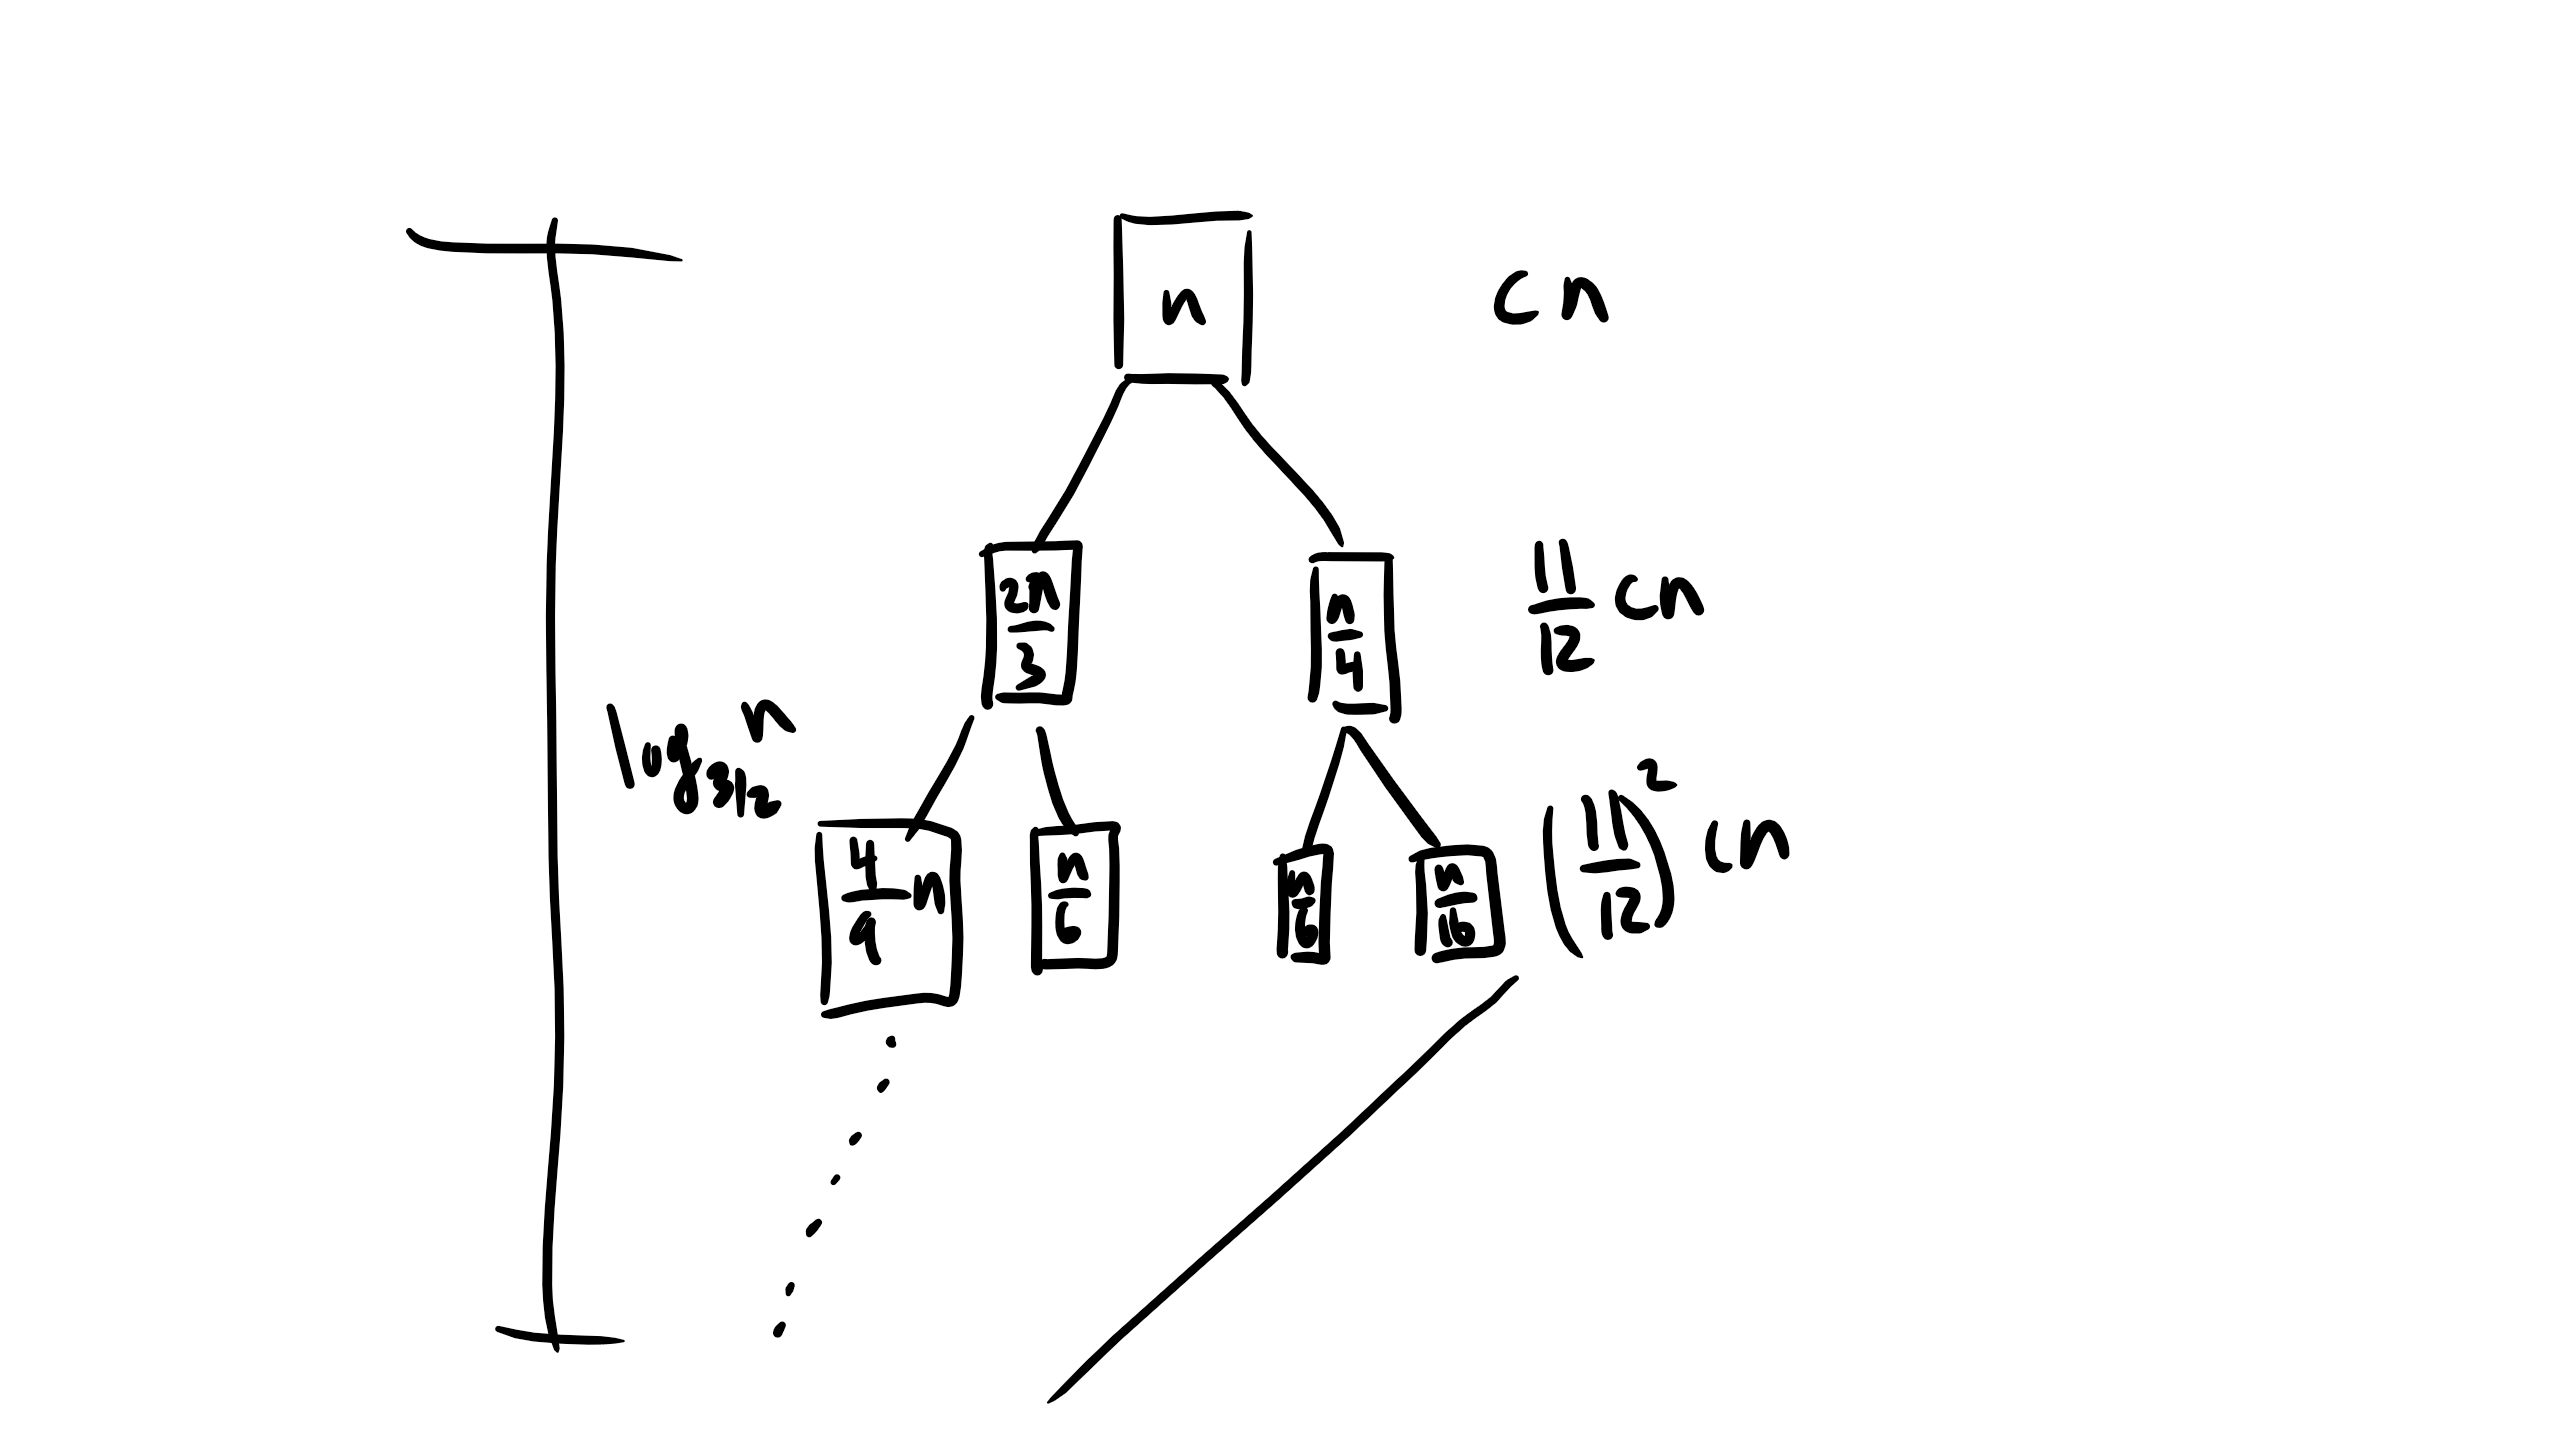 n cn
2n/3 n/4 11/12 cn
log_{3/2} n
4/9 n n/6 n/6 n/16 (11/12)^2 cn